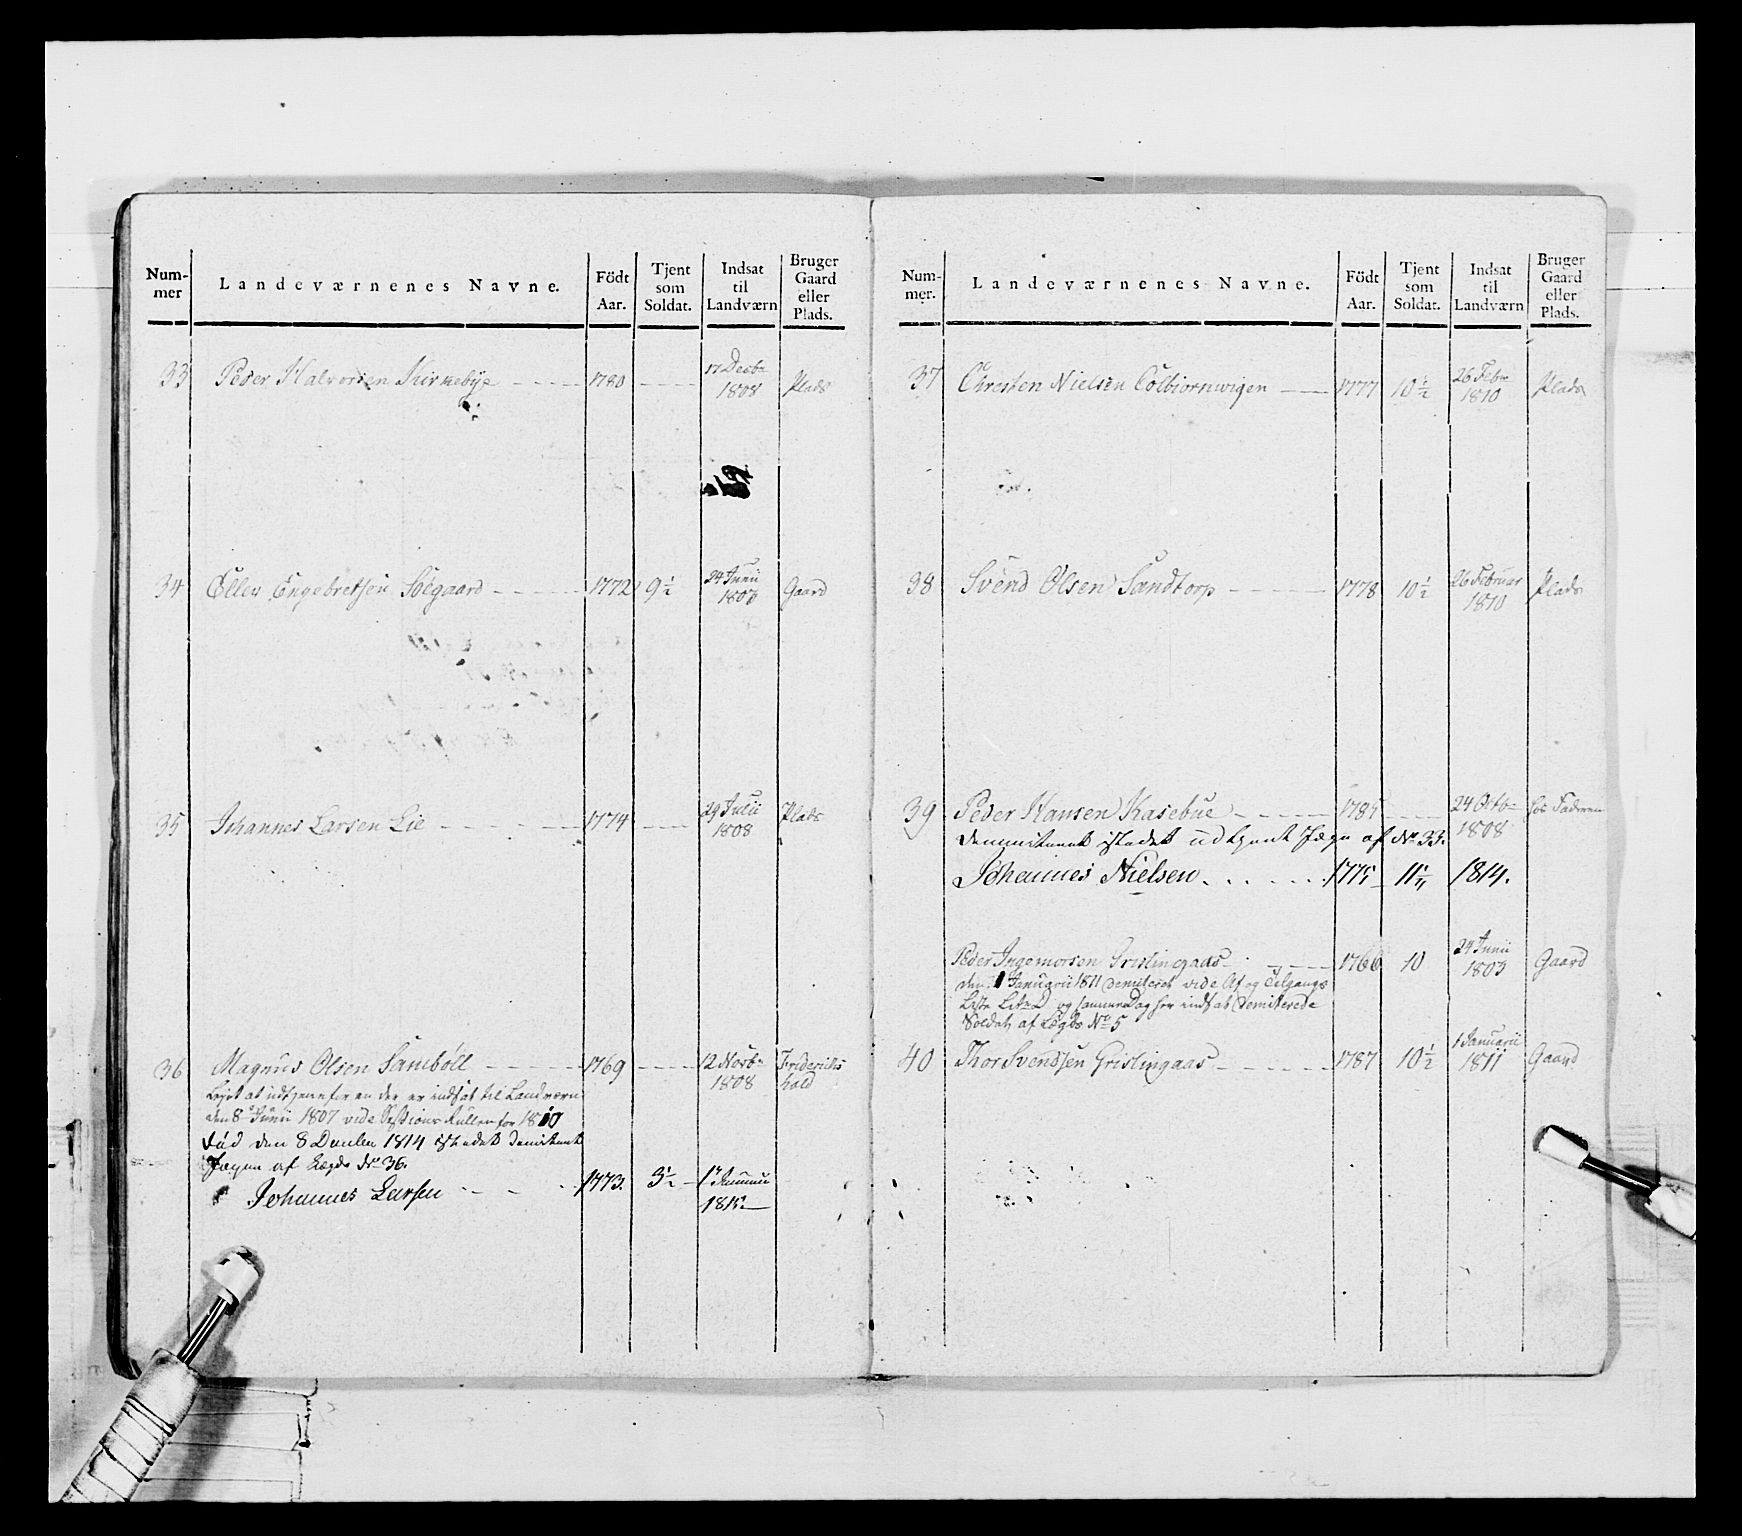 Num-
mer
Landeværnenes Navne.
Födt
Aar.
Tjent
som
Soldat.
Indsat
til
Landværn
Bruger
Gaard
eller
Plads.
33 Peder Halvorsen Kirkebye 1780 17 Decbr 1808 Plads
34 Ellev Engebretsen Söegaard 1772 9½ 24 Junii 1803 Gaard
35 Johannes Larsen Lie 1774 29 Julii 1808 Plads
36 Magnus Olsen Sambøll 1769 12 Novbr 1808 Friderichshald
at udtjene for en der er indsat til Landværn
den 8 Junii 1807 vide Sessions Rullen for 1810
Död den 8 1814 istedet
af Lægds No 36.
Johannes Larsen 1773. 3½ 1 Januarii 1815
Num-
mer.
Landeværnenes Navne.
Födt
Aar.
Tjent
som
Soldat.
Indsat
til
Landværn
Bruger
Gaard
eller
Plads.
37 Christen Nielsen Colbiornwigen 1777 10½ 26 Febr 1810 Plads
38 Svend Olsen Sandtorp 1778 10½ 26 Februar 1810 Plads
39 Peder Hansen Kasebue 1785 24 Octbr 1808 hos Faderen
istedet udtjent af No 33.
Johannes Nielsen 1775 1814.
Peder Ingemorsen Gristingaas 1766 10 24 Junii 1803 Gaard
den 1 Januarii 1811 demiteret vide Af og Tilgangs
Liste og samme Dag her indsat Demiterede
Soldat af Lægds No 5
40 Thor Svendsen Gristingaas 1787 10½ 1 Januarii 1811 Gaard